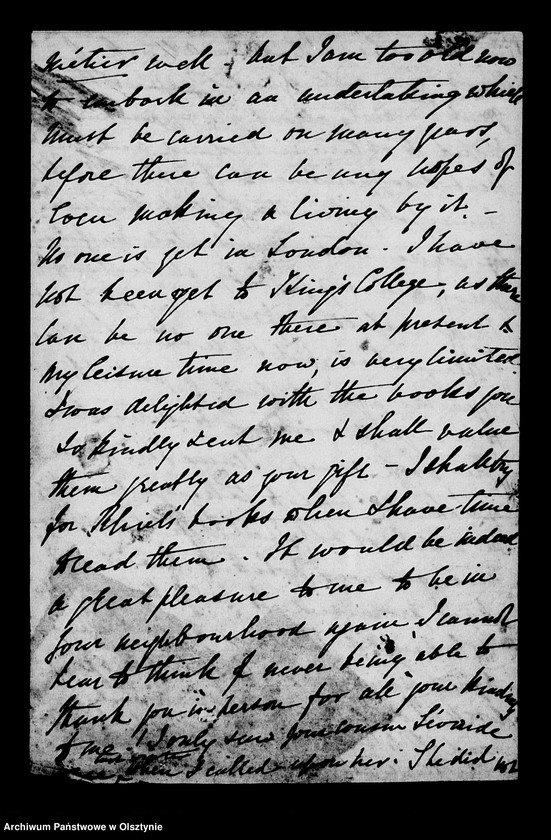 métier well, but I am too old now
to embark in an undertaking which
must be carried on many years,
before there can be any hopes of
even making a living by it. -
No one is yet in London. I have
not been yet to King's College, as there
can be no one there at present &
my leisure time now, is very limited.
I was delighted with the books you
so kindly sent me & shall value
them greatly as your gift - I shall try
for books when I have time
to read them. It would be indeed
a great pleasure to me to be in
your neighbourhood again. I cannot
bear to think of never being able to
thank you in person for all your kindness
to me. I only saw your cousin
when I called upon her. She did not
Archiwum Państwowe w Olsztynie